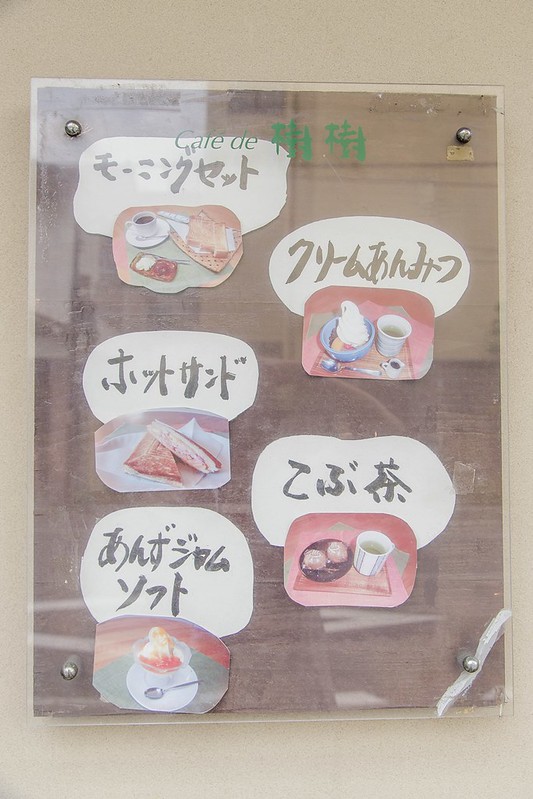 Café de 樹樹
モーニングセット
クリームあんみつ
ホットサンド
こぶ茶
あんずジャム
ソフト